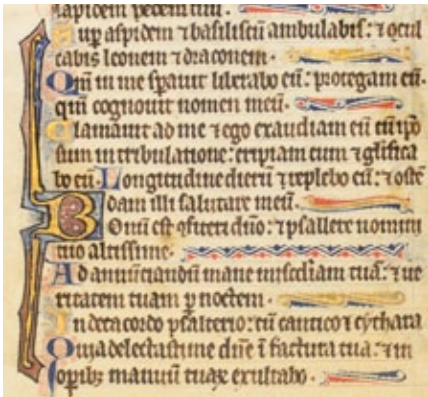 lapidem pedem tuu.
Sup aspidem ⁊ basiliscu ambulabis: ⁊ ocul
cabis leonem ⁊ draconem.
Qm in me spauit liberabo eu: protegam eu.
qm cognouit nomen meu.
Clamauit ad me ⁊ ego exaudiam eu cu ipo
sum in tribulatione: eripiam eum ⁊ glifica
bo eu. Longitudine dieru ⁊ replebo eu: ⁊ oste
dam illi salutare meu.
Bonu est ofiteri dno: ⁊ psallere nomini
tuo altissime.
Ad annunciandu mane miscdiam tua: ⁊ ue
ritatem tuam p noctem.
In decacordo psalterio: cu cantico ⁊ cythara
Quia delectasti me dne i factura tua: ⁊ in
opibz manuu tuaꝝ exultabo.